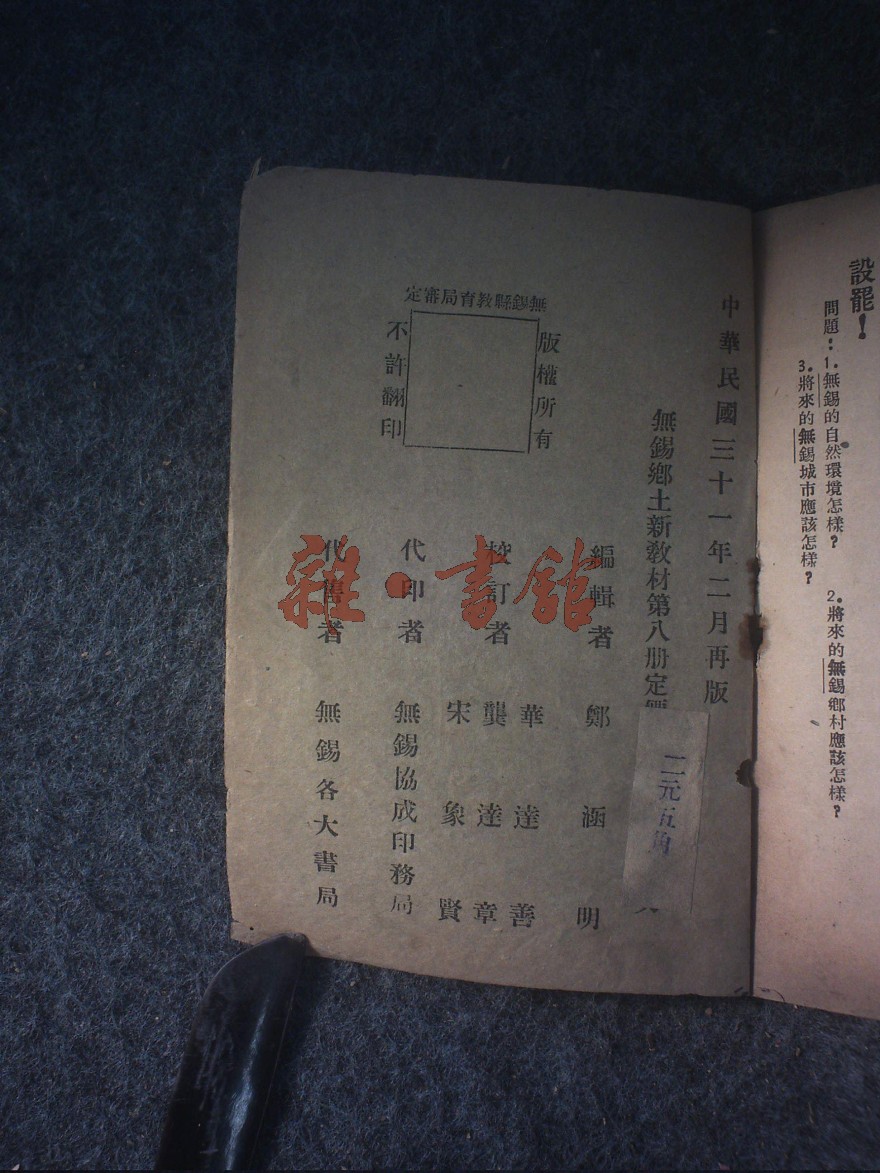 設罷！
問題：1.無錫的自然環境怎樣？ 2.將來的無錫鄉村應該怎樣？
3.將來的無錫城市應該怎樣？
中華民國三十一年二月再版
無錫鄉土新教材第八册定價
二元五角
無錫縣教育局審定
版權所有
不許翻印
編輯者 鄭涵明
校訂者 華達善
龔達章
宋象賢
代印者 無錫協成印務局
代售者 無錫各大書局
雜·書館